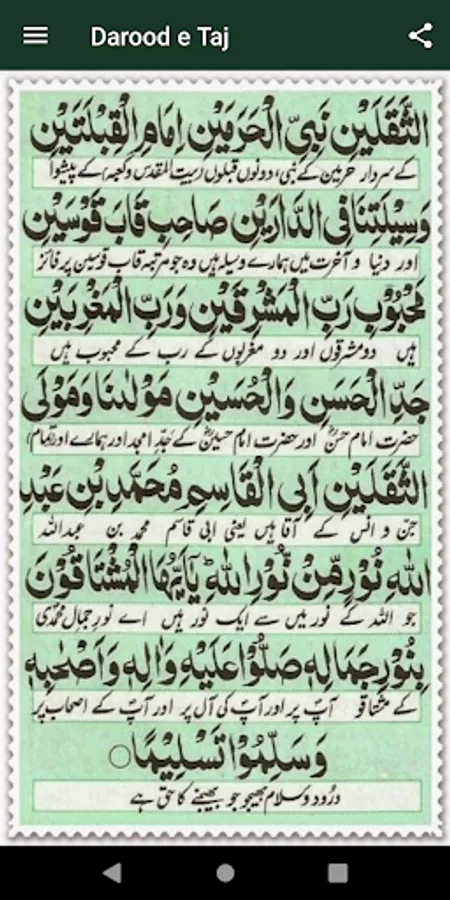 Darood e Taj
الثَّقَلَيْنِ نَبِيِّ الْحَرَمَيْنِ اِمَامِ الْقِبْلَتَيْنِ
کے سردار حرمین کے نبی، دونوں قبلوں (بیت المقدس وکعبہ) کے پیشوا
وَسِيْلَتِنَا فِي الدَّارَيْنِ صَاحِبِ قَابَ قَوْسَيْنِ
اور دنیا و آخرت میں ہمارے وسیلہ ہیں وہ جو مرتبہ قاب قوسین پر فائز
مَحْبُوْبِ رَبِّ الْمَشْرِقَيْنِ وَرَبِّ الْمَغْرِبَيْنِ
ہیں دو مشرقوں اور دو مغربوں کے رب کے محبوب ہیں
جَدِّ الْحَسَنِ وَالْحُسَيْنِ مَوْلٰنَا وَمَوْلَى
حضرت امام حسنؓ اور حضرت امام حسینؓ کے جدِّ امجد اور ہمارے اور (تمام)
الثَّقَلَيْنِ اَبِي الْقَاسِمِ مُحَمَّدِ بْنِ عَبْدِ
جن و انس کے آقا ہیں یعنی ابی قاسم محمد بن عبداللہ
اللهِ نُوْرٍ مِّنْ نُوْرِ اللهِ ؕ يٰٓاَيُّهَا الْمُشْتَاقُوْنَ
جو اللہ کے نور میں سے ایک نور ہیں اے نورِ جمالِ محمدی
بِنُوْرِ جَمَالِهٖ صَلُّوْا عَلَيْهِ وَاٰلِهٖ وَاَصْحٰبِهٖ
کے مشتاقو آپؐ پر اور آپؐ کی آل پر اور آپؐ کے اصحاب پر
وَسَلِّمُوْا تَسْلِيْمًا ○
درُود وسلام بھیجو جو بھیجنے کا حق ہے